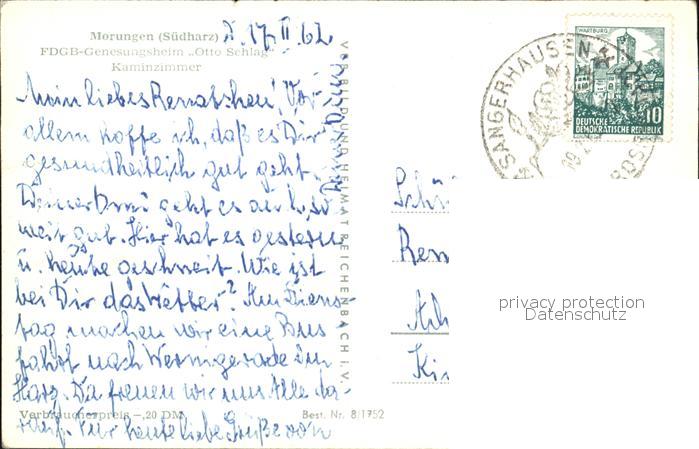 Morungen (Südharz)
FDGB-Genesungsheim „Otto Schlag"
Kaminzimmer
d. 17. II. 62
Mein liebes Renatchen! Vor
allem hoffe ich, daß es Dir
gesundheitlich gut geht.
Deiner Omi geht es auch so
weit gut. Hier hat es gestern
u. heute geschneit. Wie ist
bei Dir das Wetter? Am Diens-
tag machen wir eine Bus
fahrt nach Wernigerode im
Harz. Da freuen wir uns Alle da-
rauf. Für heute liebe Grüße von
Deiner Omi
Verbraucherpreis –,20 DM
Best. Nr. 8/1752
VOGTLAND UND HEIMAT REICHENBACH I. V.
SANGERHAUSEN
WARTBURG
10
DEUTSCHE
DEMOKRATISCHE REPUBLIK
Ren
Ki
privacy protection
Datenschutz